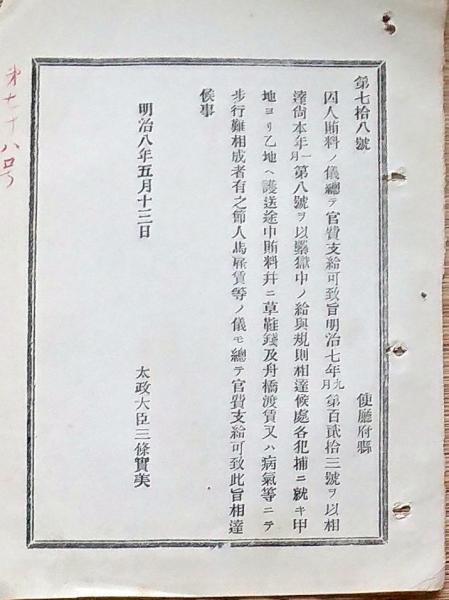 第七十八号
第七拾八號
使廳府縣
囚人賄料ノ儀總テ官費支給可致旨明治七年九月第百貳拾三號ヲ以相
達尙本年一月第八號ヲ以繫獄中ノ給與規則相達候處各犯捕ニ就キ甲
地ヨリ乙地ヘ護送途中賄料幷ニ草鞋錢及舟橋渡賃又ハ病氣等ニテ
步行難相成者有之節人馬雇賃等ノ儀モ總テ官費支給可致此旨相達
候事
明治八年五月十三日
太政大臣三條實美